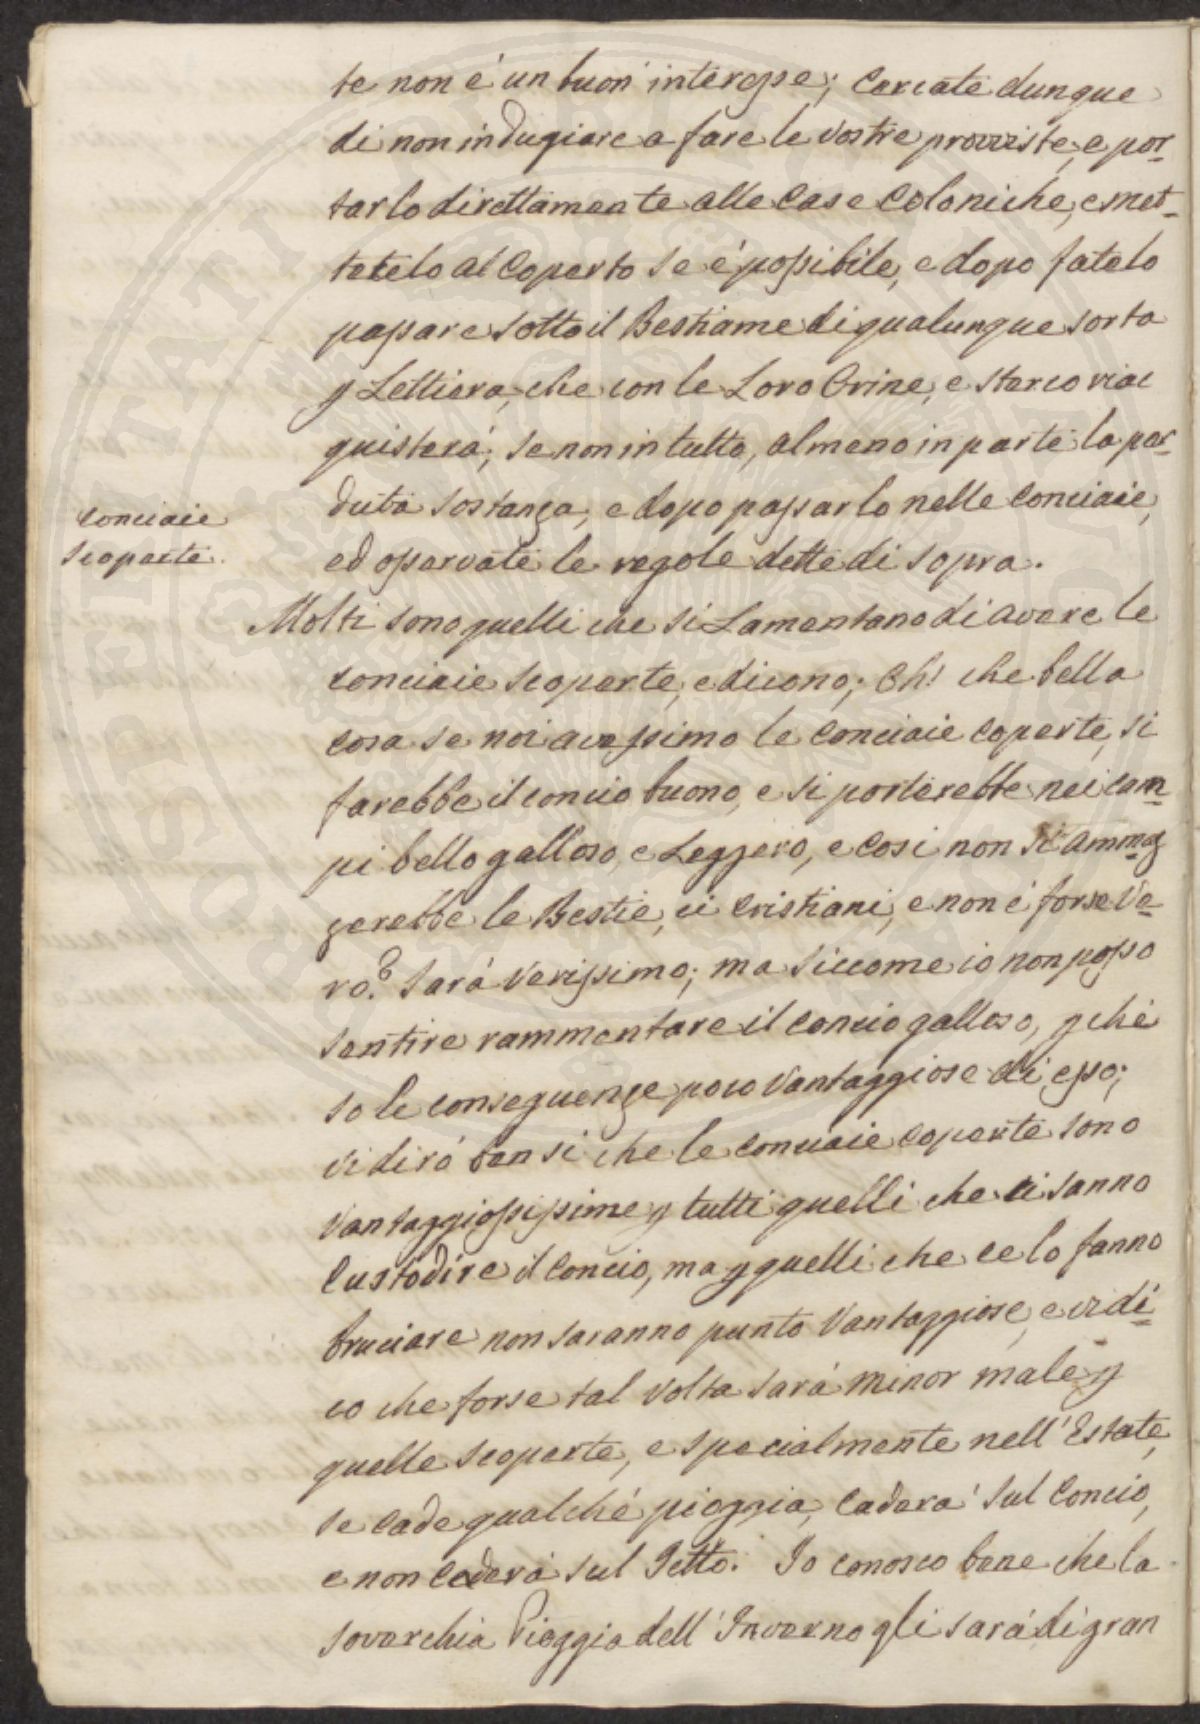 te non é un buon interesse; Cercate dunque
di non indugiare a fare le vostre provviste, e por-
tarlo direttamente alle Case Coloniche, e met-
tetelo al Coperto se é possibile, e dopo fatelo
passare sotto il Bestiame di qualunque sorta
p Lettiera, che con le Loro Orine, e sterco riac
quisterá; se non in tutto, almeno in parte la per-
duta sostanza, e dopo passarlo nelle Conciaie,
ed osservate le regole dette di sopra.
Conciaie
Scoperte.
Molti sono quelli che si Lamentano di avere le
conciaie scoperte, e dicono; Oh! che bella
cosa se noi avessimo le Conciaie coperte, si
farebbe il concio buono, e si porterebbe nei cam-
pi bello galloso, e Leggero, e cosi non si ammaz
zerebbe le Bestie, ei Cristiani, e non é forse Ve-
ro? Sará Verissimo; ma siccome io non posso
sentire rammentare il Concio galloso, pché
so le conseguenze poco Vantaggiose di esso;
vi diró ben si che le conciaie coperte sono
Vantaggiosissime p tutti quelli che ci sanno
Custodire il Concio, ma p quelli che ce lo fanno
bruciare non saranno punto Vantaggiose, e vi di-
co che forse tal volta sará minor male p
quelle scoperte, e specialmente nell'Estate,
se cade qualché pioggia, Caderá sul Concio,
e non Caderá sul Tetto. Io conosco bene che la
soverchia Pioggia dell'Inverno gli sará di gran